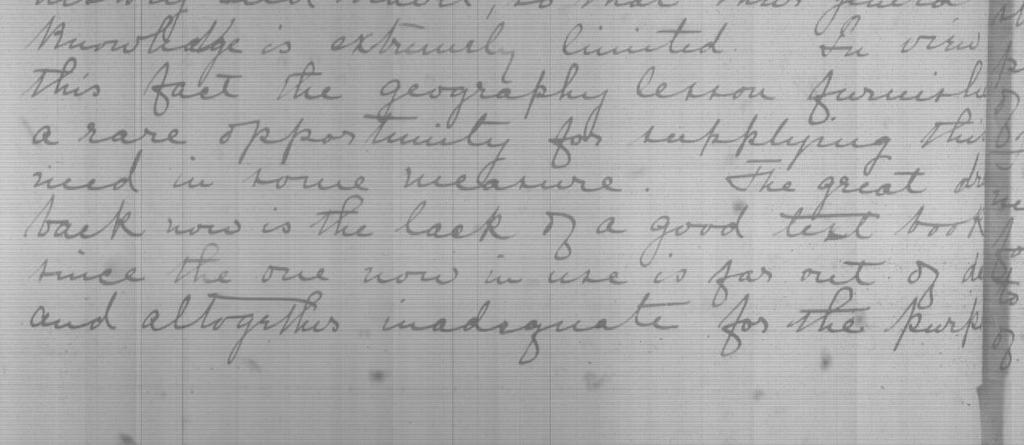 knowledge is extremely limited. In view
this fact the geography lesson furnish
a rare opportunity for supplying this
need in some measure. The great dr
back now is the lack of a good text book
since the one now in use is far out of d
and altogether inadequate for the purp